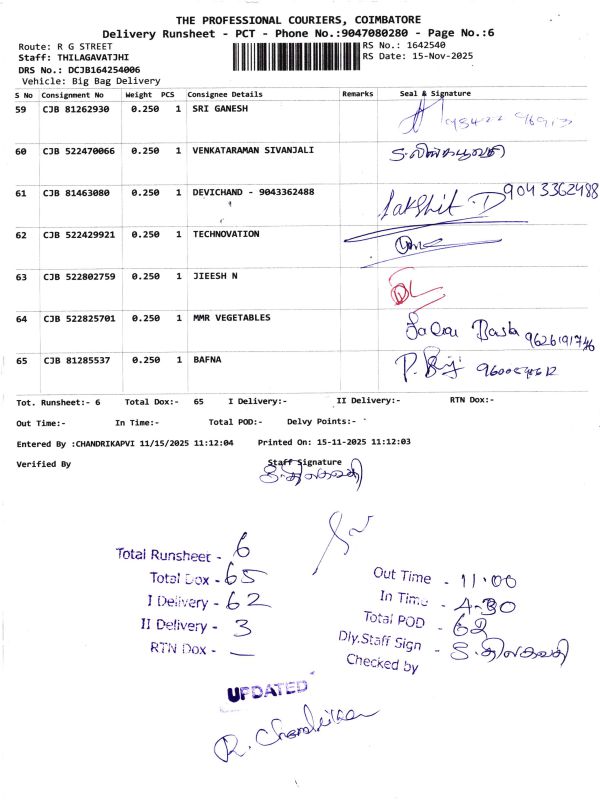 THE PROFESSIONAL COURIERS, COIMBATORE
Delivery Runsheet - PCT - Phone No.:9047080280 - Page No.:6
Route: R G STREET RS No.: 1642540
Staff: THILAGAVATJHI RS Date: 15-Nov-2025
DRS No.: DCJB164254006
Vehicle: Big Bag Delivery
S No Consignment No Weight PCS Consignee Details Remarks Seal & Signature
59 CJB 81262930 0.250 1 SRI GANESH
60 CJB 522470066 0.250 1 VENKATARAMAN SIVANJALI
61 CJB 81463080 0.250 1 DEVICHAND - 9043362488 Lakshit . D 9043362488
62 CJB 522429921 0.250 1 TECHNOVATION
63 CJB 522802759 0.250 1 JIEESH N
64 CJB 522825701 0.250 1 MMR VEGETABLES 9626191746
65 CJB 81285537 0.250 1 BAFNA
Tot. Runsheet:- 6 Total Dox:- 65 I Delivery:- II Delivery:- RTN Dox:-
Out Time:- In Time:- Total POD:- Delvy Points:-
Entered By :CHANDRIKAPVI 11/15/2025 11:12:04 Printed On: 15-11-2025 11:12:03
Verified By Staff Signature
S.திலகவதி
Total Runsheet - 6
Total Dox - 65
I Delivery - 62
II Delivery - 3
RTN Dox - —
Out Time - 11.00
In Time - 4.30
Total POD - 62
Dly.Staff Sign - S.திலகவதி
Checked by
UPDATED
R. Chandrika